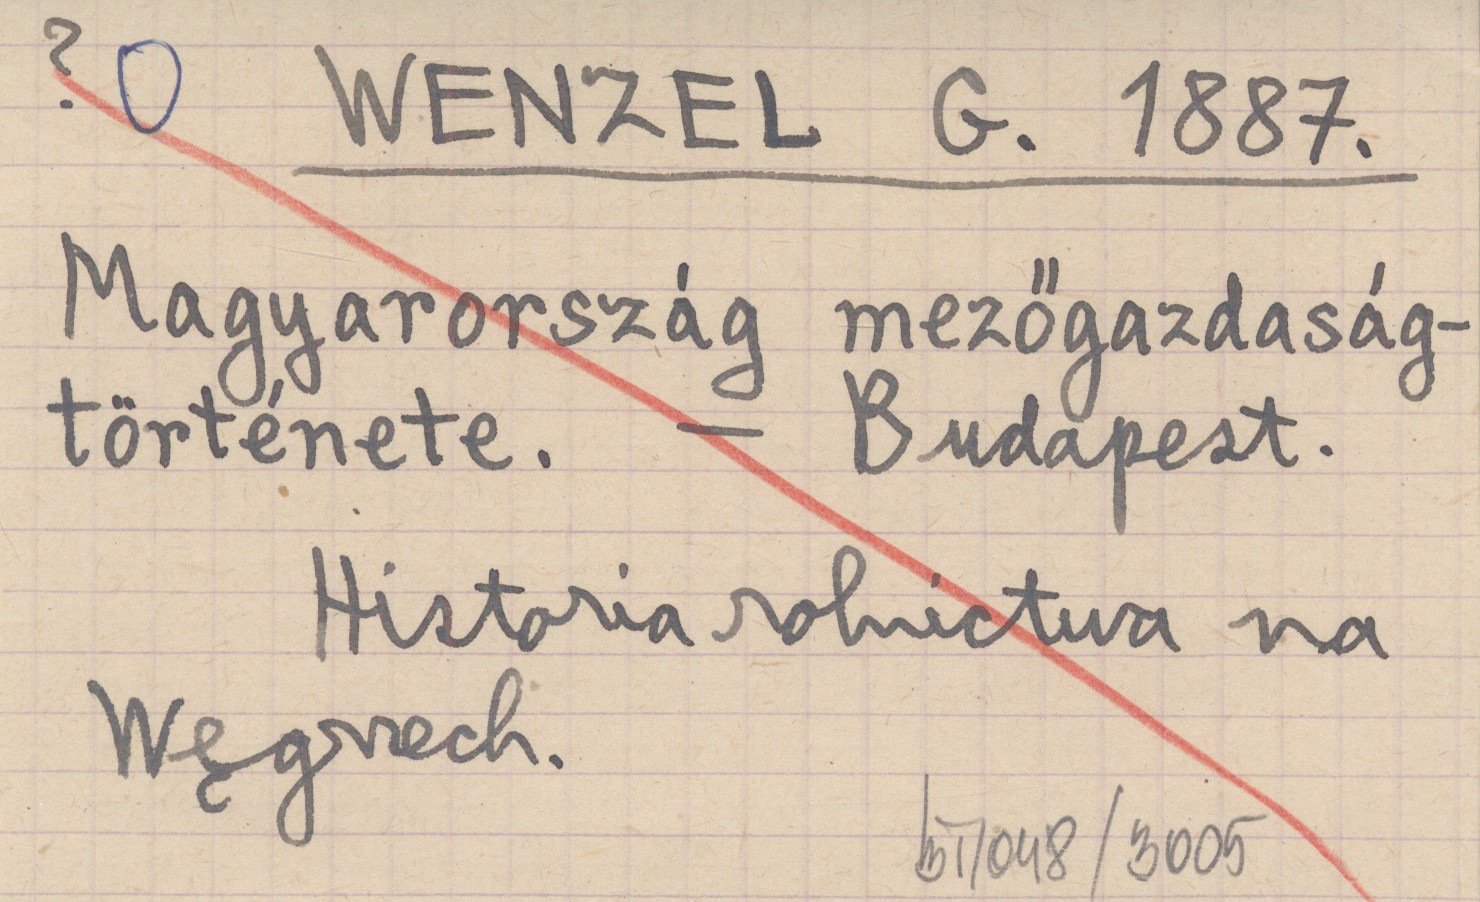 ? O WENZEL G. 1887.
Magyarország mezőgazdaság-
története. — Budapest.
Historia rolnictwa na
Węgrzech.
/3005